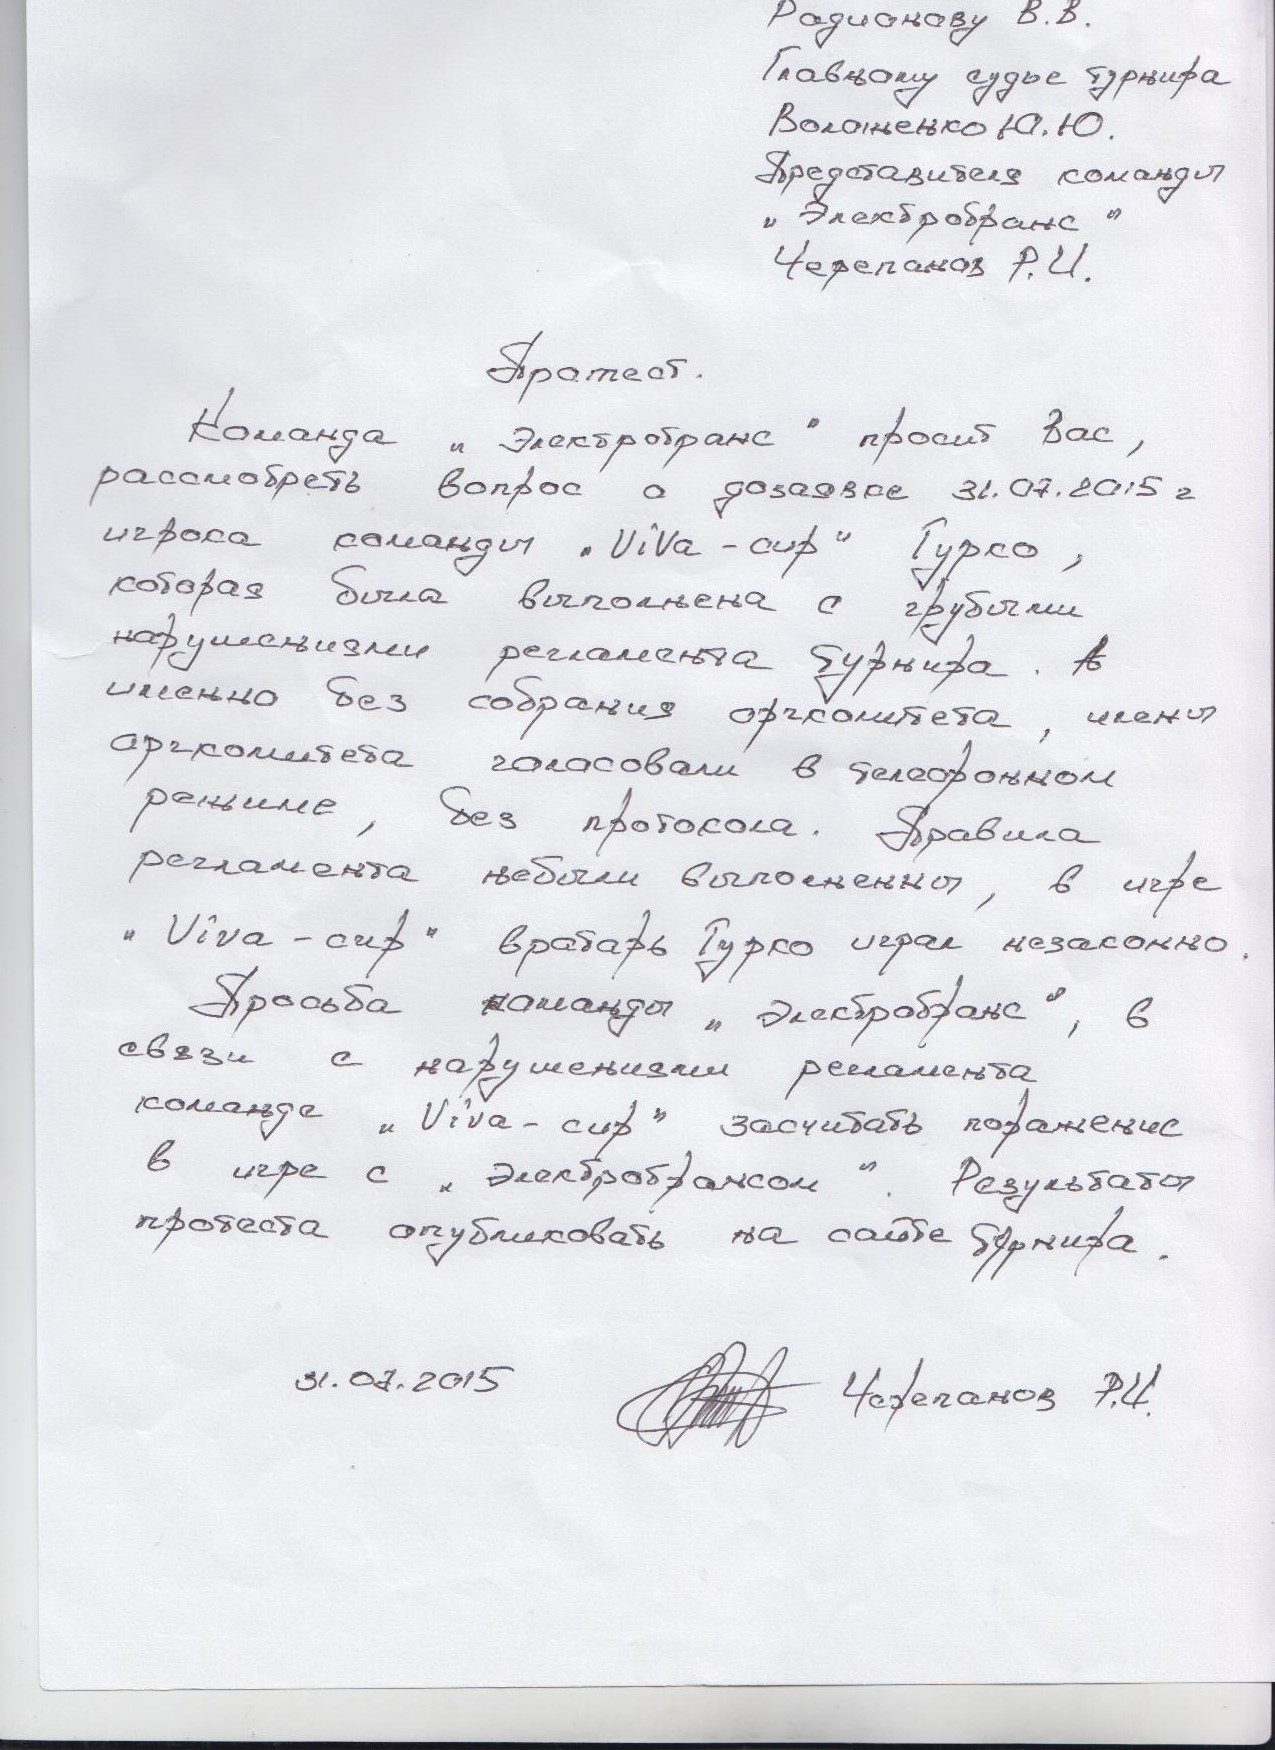 Радионову В.В.
Главному судье турнира
Волошенко Ю.Ю.
Представителя команды
„Электротранс"
Черепанов Р.И.
Протест.
Команда „Электротранс" просит Вас,
рассмотреть вопрос о дозаявке 31.07.2015 г
игрока команды „ViVa-сир" Гурко,
которая была выполнена с грубыми
нарушениями регламента турнира. А
именно без собрания оргкомитета, члены
оргкомитета голосовали в телефонном
режиме, без протокола. Правила
регламента небыли выполненны, в игре
„Viva-сир" вратарь Гурко играл незаконно.
Просьба команды „Электротранс", в
связи с нарушениями регламента
команде „Viva-сир" засчитать поражение
в игре с „Электротрансом". Результаты
протеста опубликовать на сайте турнира.
31.07.2015 Черепанов Р.И.